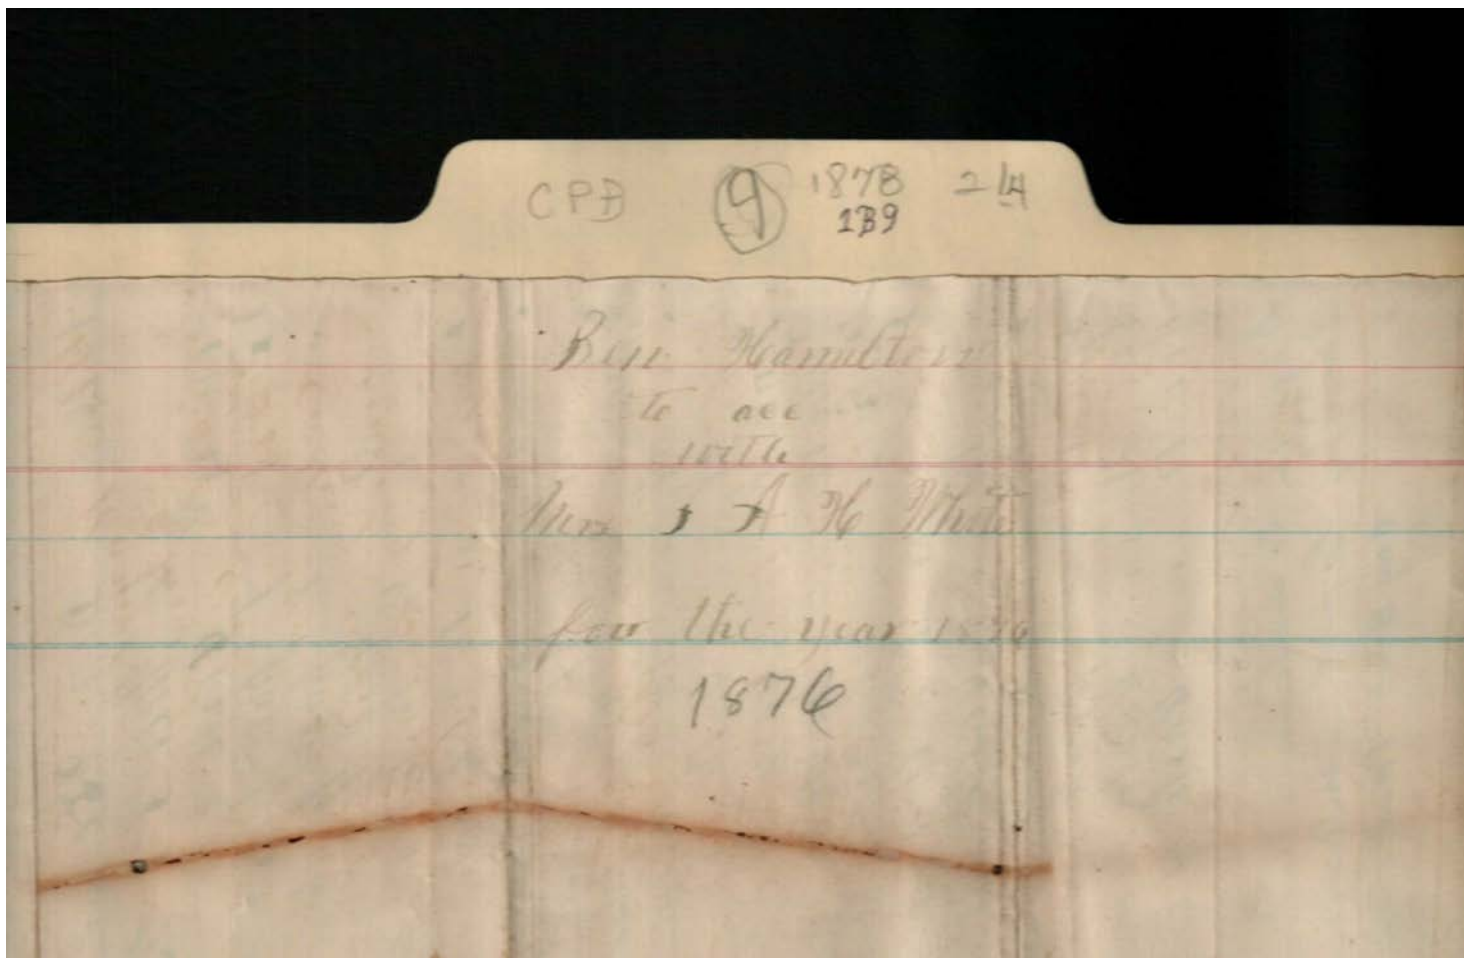 CPD 9 1878 2/4
1B9
Ben Hamilton
to acc
with
Mrs A H White
for the year 1876
1876